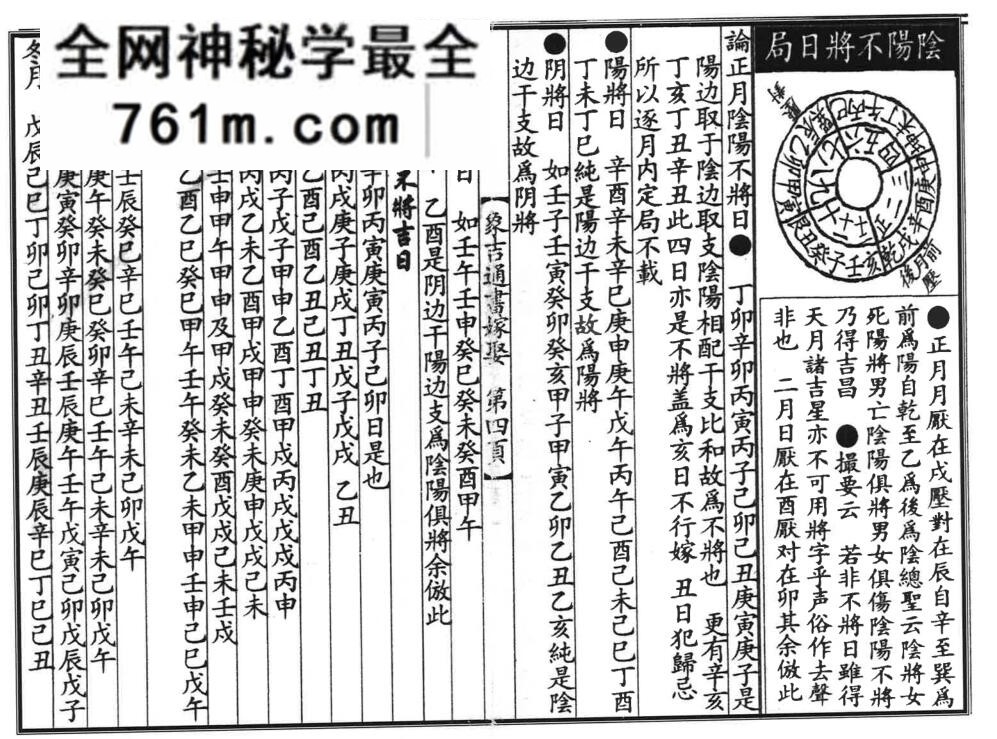 全网神秘学最全
761m.com
陰陽不將日局
對壓
前
月壓
後
巽辰乙卯甲寅艮丑癸子壬亥乾戌辛酉庚申坤未丁午丙巳
●正月月厭在戌壓對在辰自辛至巽爲
前爲陽自乾至乙爲後爲陰總聖云陰將女
死陽將男亡陰陽俱將男女俱傷陰陽不將
乃得吉昌 ●撮要云 若非不將日雖得
天月諸吉星亦不可用將字乎声俗作去聲
非也 二月日厭在酉厭对在卯其余倣此
論正月陰陽不將日● 丁卯辛卯丙寅丙子己卯己丑庚寅庚子是
陽边取于陰边取支陰陽相配干支比和故爲不將也 更有辛亥
丁亥丁丑辛丑此四日亦是不將盖爲亥日不行嫁 丑日犯歸忌
所以逐月内定局不載
●陽將日 辛酉辛未辛巳庚申庚午戊午丙午己酉己未己巳丁酉
丁未丁巳純是陽边干支故爲陽將
●阴將日 如壬子壬寅癸卯癸亥甲子甲寅乙卯乙丑乙亥純是陰
边干支故爲阴將
【象吉通書嫁娶 第四頁】
日 如壬午壬申癸巳癸未癸酉甲午
乙酉是阴边干陽边支爲陰陽俱將余倣此
不將吉日
辛卯丙寅庚寅丙子己卯日是也
丙戌庚子庚戌丁丑戊子戊戌 乙丑
乙酉己酉乙丑己丑丁丑
丙子戊子甲申乙酉丁酉甲戌丙戌戊戌丙申
丙戌乙未乙酉甲戌甲申癸未庚申戊戌己未
壬申甲午甲申及甲戌癸未癸酉戊戌己未壬戌
乙酉乙巳癸巳甲午壬午癸未乙未甲申壬申己巳戊午
壬辰癸巳辛巳壬午己未辛未己卯戊午
庚午癸未癸巳癸卯辛巳壬午己未辛未己卯戊午
庚寅癸卯辛卯庚辰壬辰庚午壬午戊寅己卯戊辰戊子
冬月 戊辰己巳丁卯己卯丁丑辛丑壬辰庚辰辛巳丁巳己丑